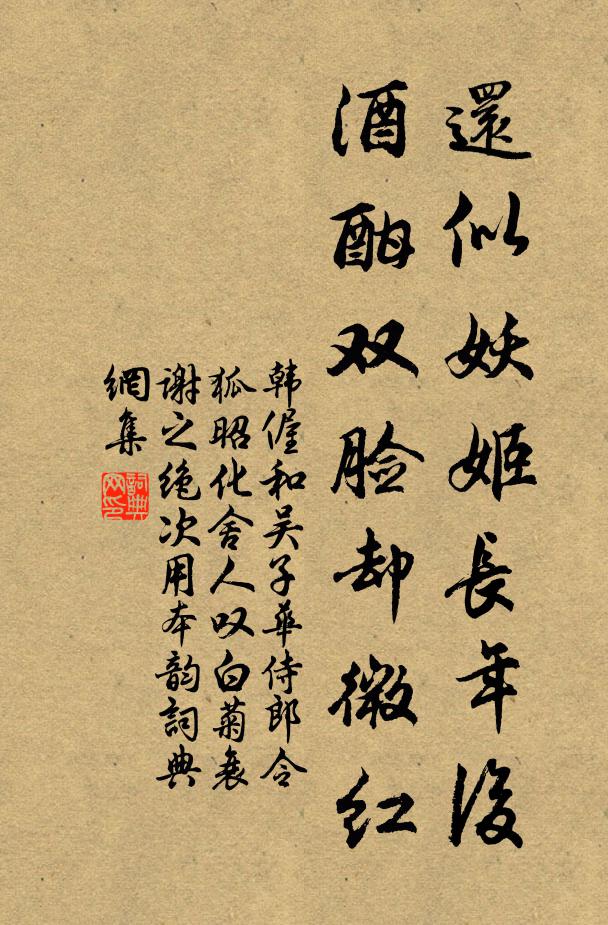 還似妖姬長年後
酒酣双脸却微红
韩偓和吴子華侍郎令
狐昭化舍人叹白菊衰
谢之绝次用本韵詞典
網集
詞典
网印